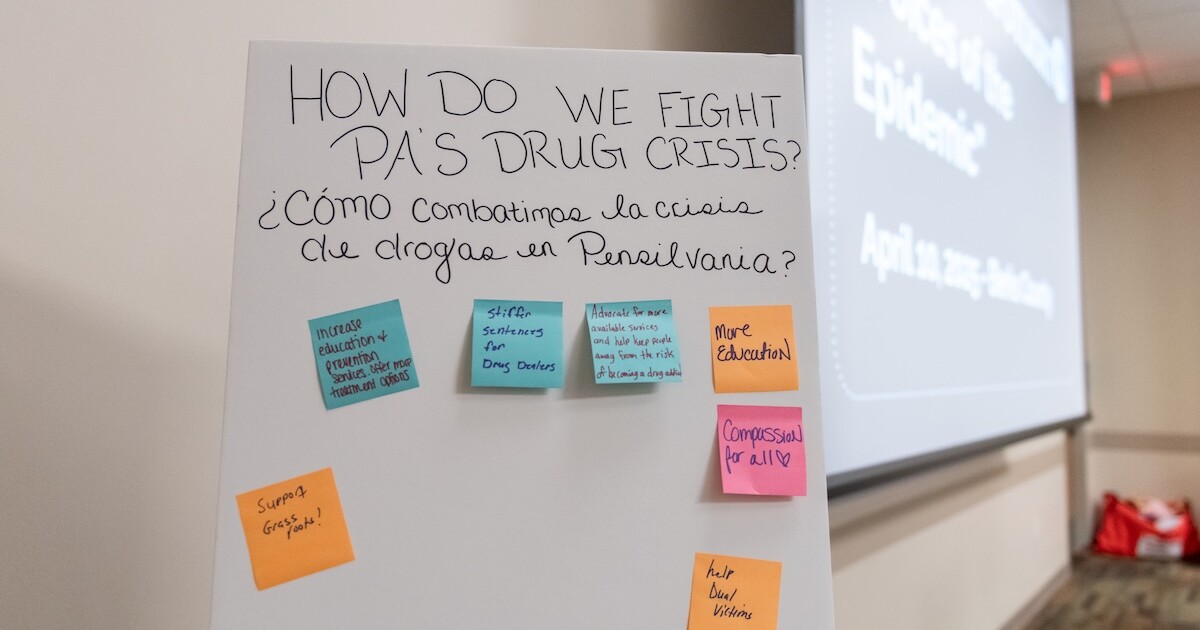 HOW DO WE FIGHT
PA'S DRUG CRISIS?
¿Cómo combatimos la crisis
de drogas en Pensilvania?
increase
education &
prevention
services. offer more
treatment options
stiffer
sentences
for
Drug Dealers
Advocate for more
available services
and help keep people
away from the risk
of becoming a drug addict
More
EDUCATION
Compassion
for all♡
Support
Grass
roots!
help
Dual
Victims
of the
Epidemic"
April 10, 2025 - County